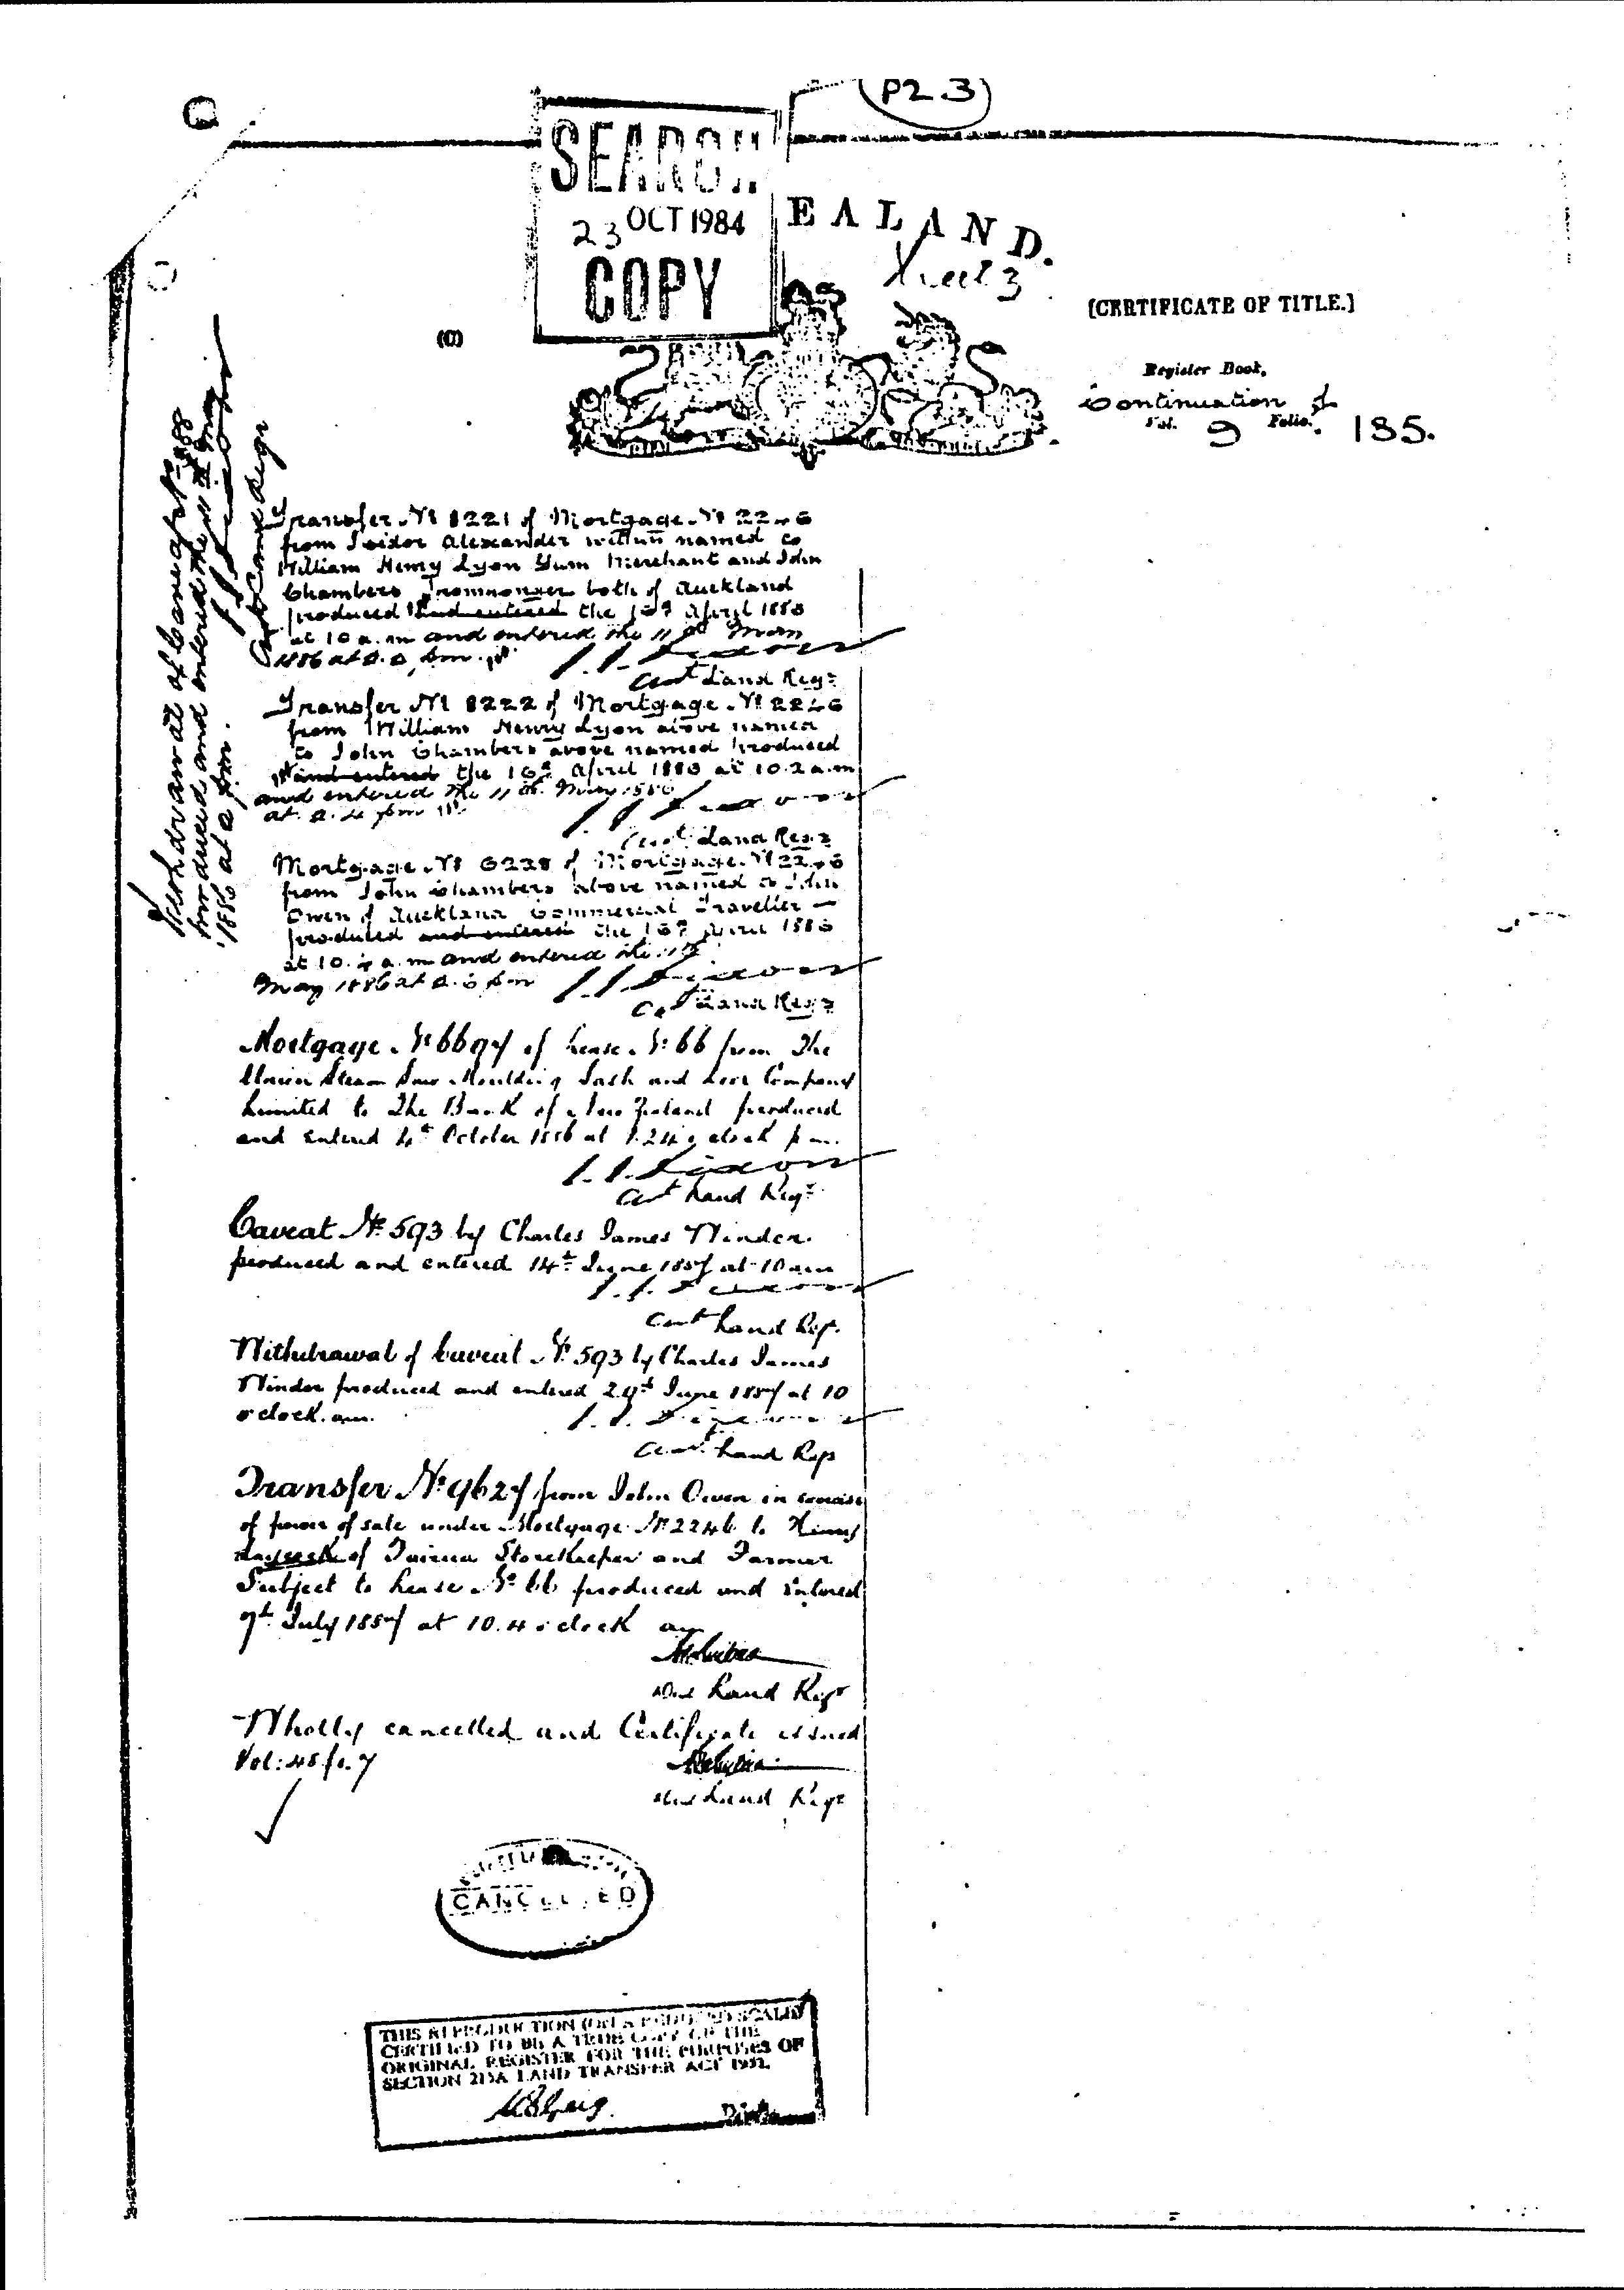 (P2.3)
SEARCH
23 OCT 1984
COPY
EALAND.
(C)
[CERTIFICATE OF TITLE.]
Register Book,
Continuation of
Vol. 9 Folio. 135.
Withdrawal of Caveat No
produced and entered the 11th May
1886 at 2 pm.
Transfer No 8221 of Mortgage No 2246
from Isidor Alexander within named to
William Henry Lyon Gum Merchant and John
Chambers Ironmonger both of Auckland
produced and entered the 16th April 1886
at 10 a.m and entered the 11th May
1886 at 2. pm.
Asst Land Regr
Transfer No 8222 of Mortgage No 2246
from William Henry Lyon above named
to John Chambers above named produced
and entered the 16th April 1886 at 10.2 a.m
and entered the 11th May 1886
at 2.4 pm
Asst Land Regr
Mortgage No 6228 of Mortgage No 2246
from John Chambers above named to John
Owen of Auckland Commercial Traveller
produced and entered the 16th April 1886
at 10.4 a.m and entered the 11th
May 1886 at 2.6 pm
Land Regr
Mortgage No 6697 of Lease No 66 from The
Union Steam Saw Moulding Sash and Door Company
Limited to The Bank of New Zealand produced
and entered 4th October 1886 at 1.24 o'clock pm.
Asst Land Regr
Caveat No 593 by Charles James Minder
produced and entered 14th June 1887 at 10 am
Asst Land Regr.
Withdrawal of Caveat No 593 by Charles James
Minder produced and entered 29th June 1887 at 10
o'clock. am.
Asst Land Regr
Transfer No 9627 from John Owen in exercise
of power of sale under Mortgage No 2246 to Henry
of Tairua Storekeeper and Farmer
Subject to Lease No 66 produced and entered
7th July 1887 at 10.4 o'clock am
Land Regr
Wholly cancelled and Certificate issued
Vol: 48 fo. 7
Land Regr
CANCELLED
THIS REPRODUCTION (ON A REDUCED SCALE)
CERTIFIED TO BE A TRUE COPY OF THE
ORIGINAL REGISTER FOR THE PURPOSES OF
SECTION 215A LAND TRANSFER ACT 1952.